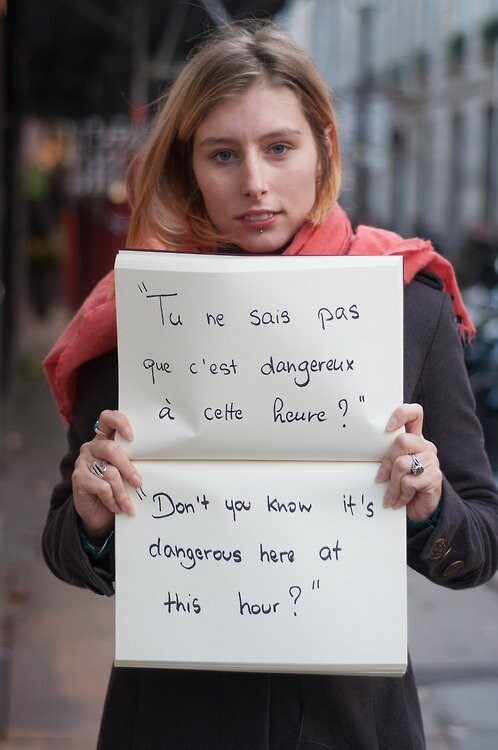 "Tu ne sais pas
que c'est dangereux
à cette heure?"
"Don't you know it's
dangerous here at
this hour?"